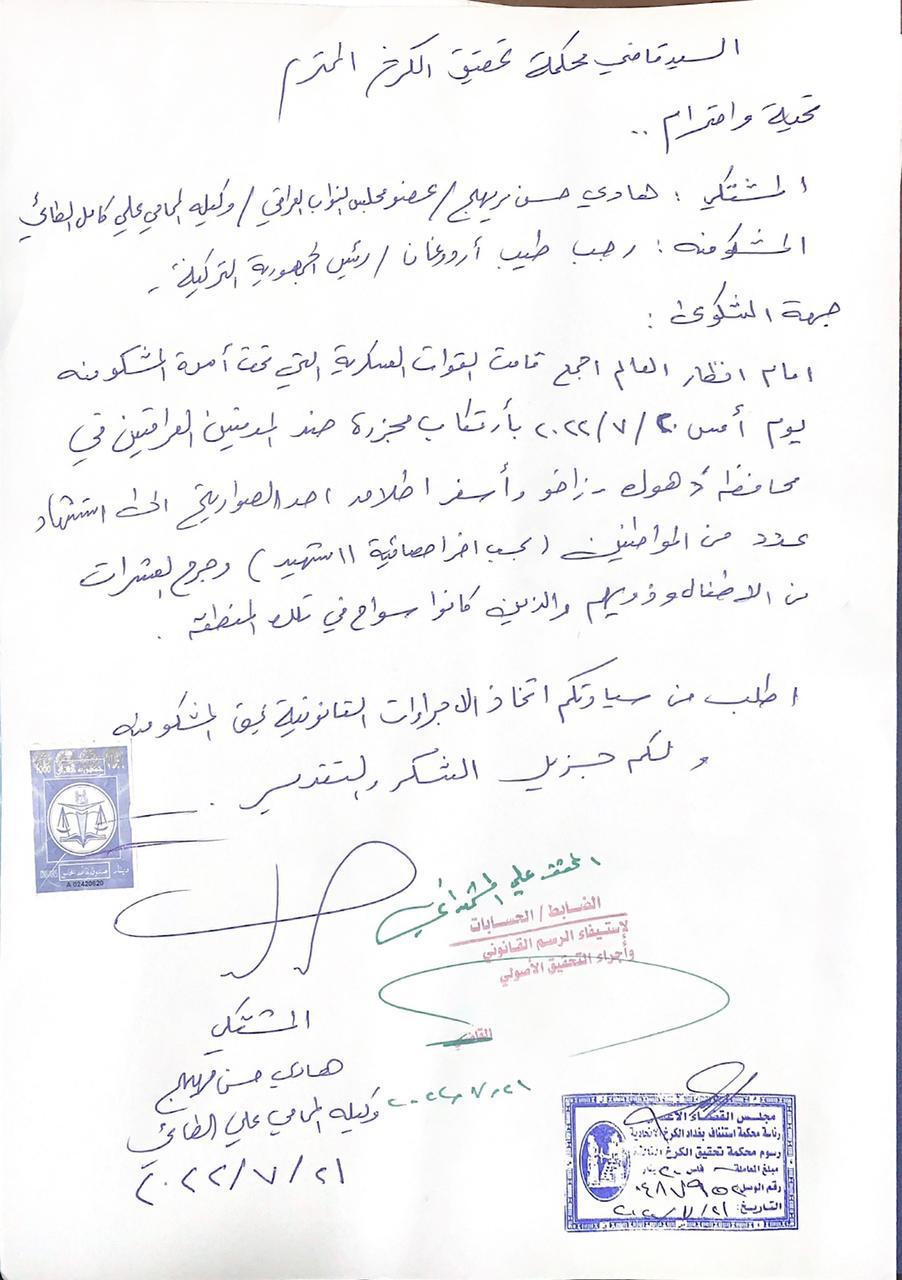 السيد قاضي محكمة تحقيق الكرخ المحترم
تحية واحترام ..
المشتكي : هادي حسن بريهج / عضو مجلس النواب العراقي / وكيله المحامي علي كامل الطائي
المشكو منه : رجب طيب أردوغان / رئيس الجمهورية التركية .
جهة الشكوى :
امام انظار العالم اجمع قامت القوات العسكرية التي تحت أمرة المشكو منه
يوم أمس ٢٠٢٢/٧/٢٠ بأرتكاب مجزرة ضد المدنين العراقين في
محافظة دهوك - زاخو وأسفر اطلاق احد الصواريخ الى استشهاد
عدد من المواطنين ( بحسب اخر احصائية ١١ شهيد ) وجرح العشرات
من الاطفال و ذويهم والذين كانوا سواح في تلك المنطقة .
اطلب من سيادتكم اتخاذ الاجراءات القانونية بحق المشكو منه
ولكم جزيل الشكر والتقدير .
دينار
A 02420620
المحقق علي
الضابط / الحسابات
لاستيفاء الرسم القانوني
وأجراء التحقيق الأصولي
القاضي
٢٠٢٢/٧/٢١
المشتكي
هادي حسن بريهج
وكيله المحامي علي الطائي
٢٠٢٢/٧/٢١
مجلس القضاء الأعلى
رئاسة محكمة استئناف بغداد الكرخ الاتحادية
رسوم محكمة تحقيق الكرخ
مبلغ المعاملة فلس دينار
رقم الوصل
التاريخ: